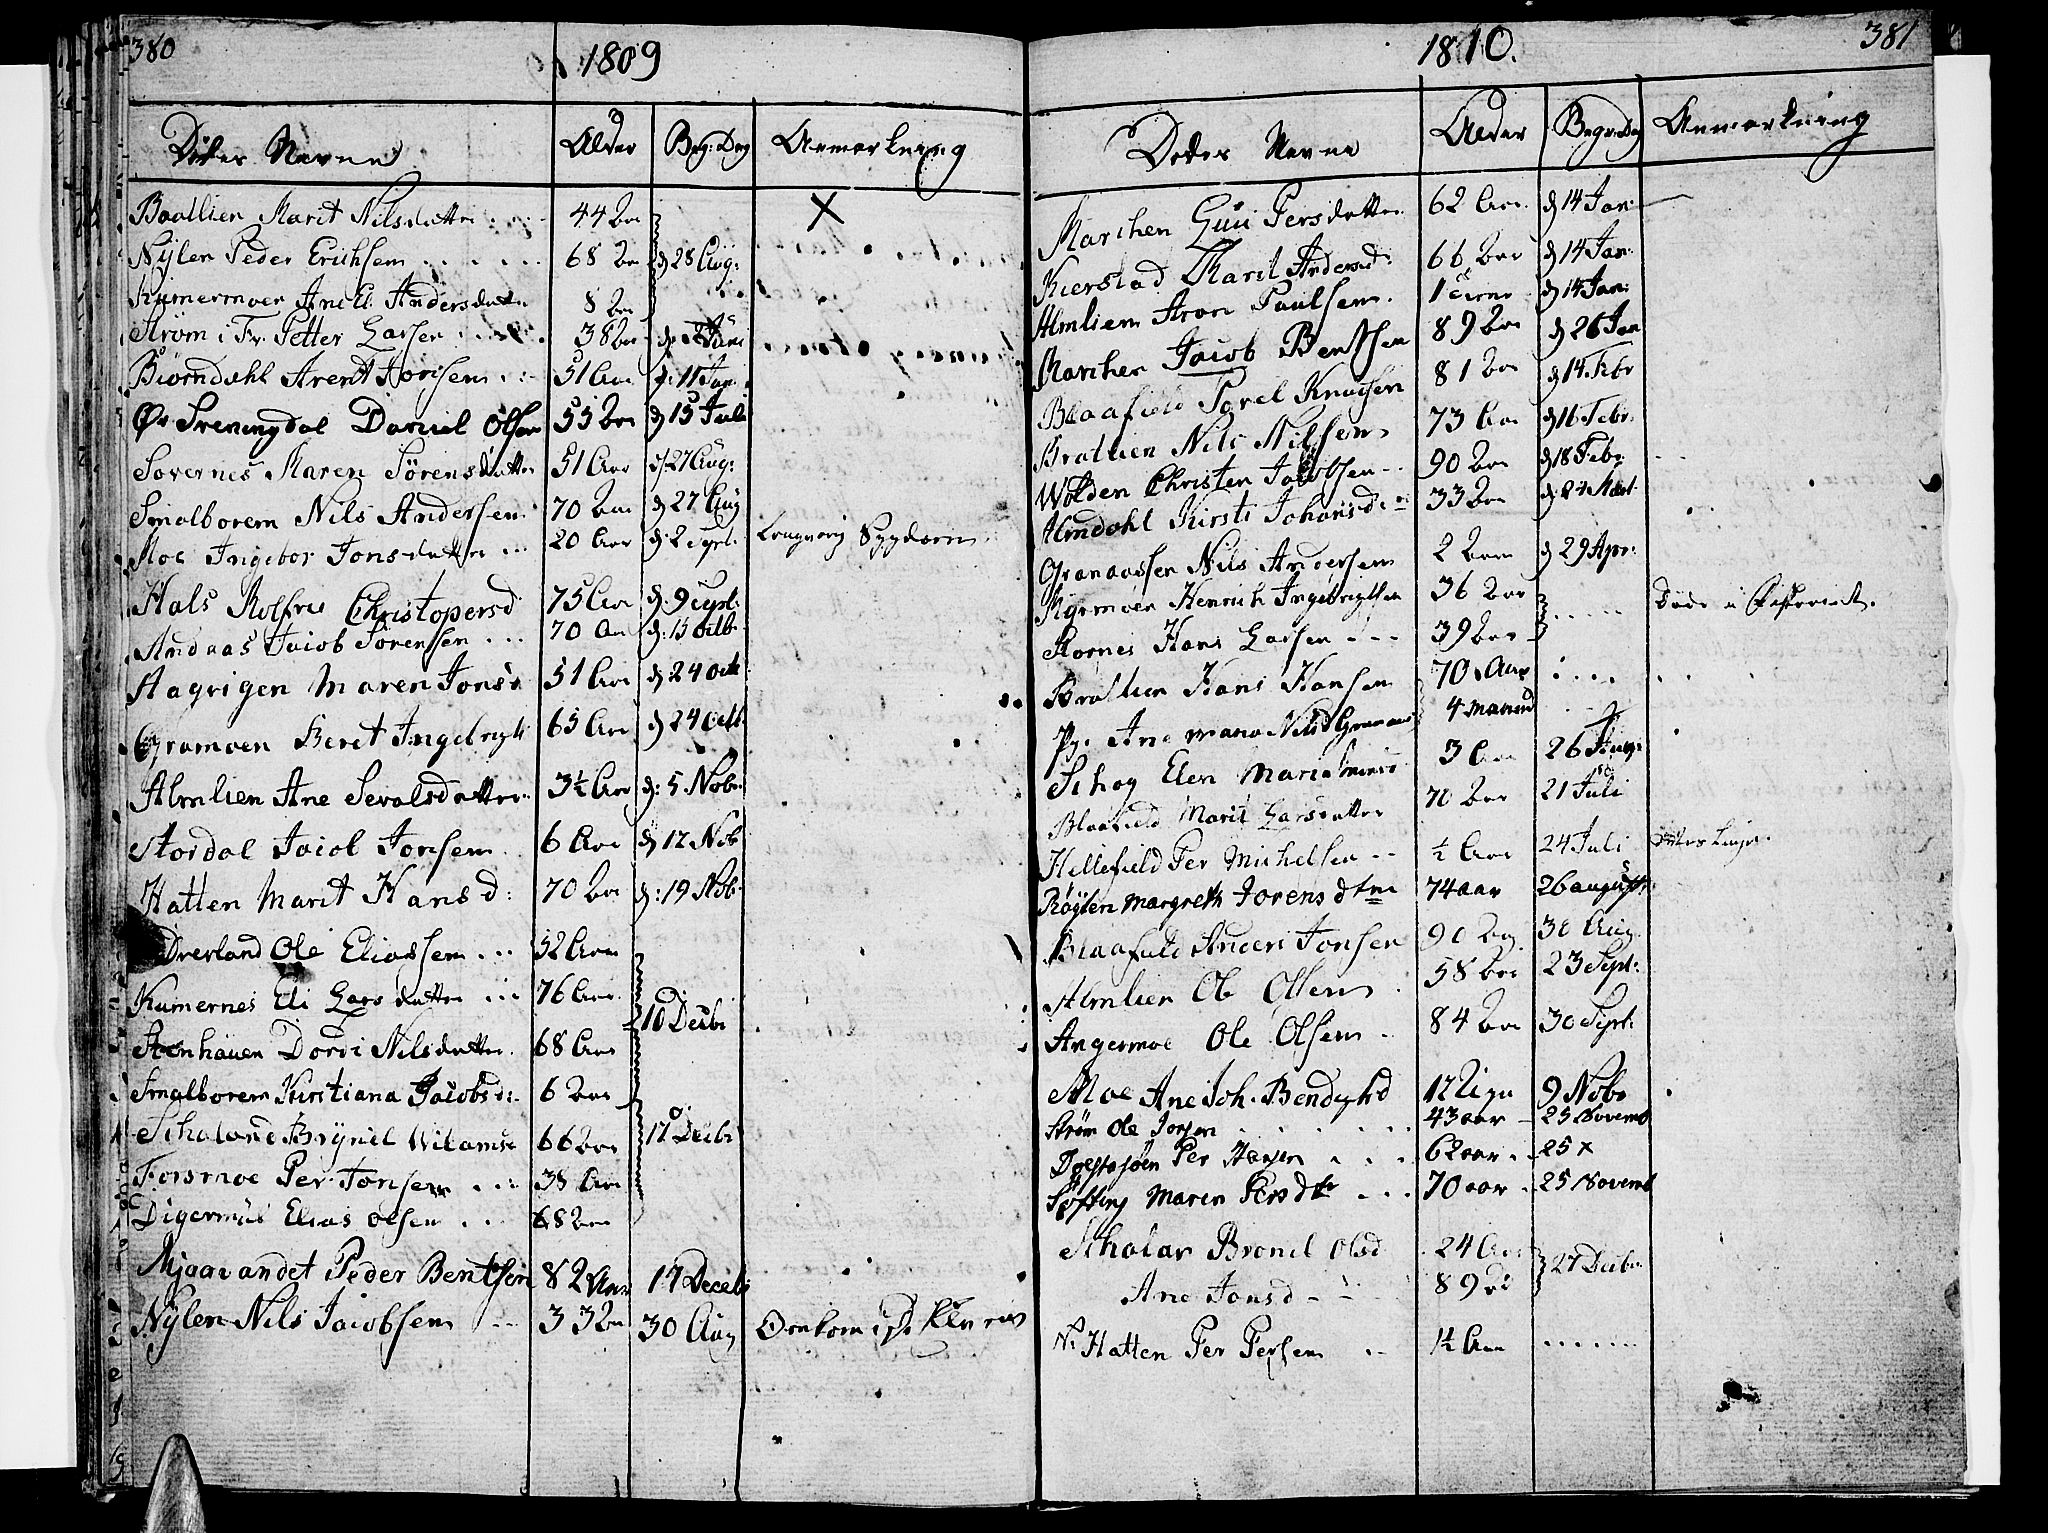 380
1809
Døder Navne Alder Beg: Dag Anmerkning
Baallien Marit Nilsdatter 44 Aar X
Nylen Peder Erichsen 68 Aar d 28 Aug:
Kumermoen Ane El. Andersdatter 8 Aar
Strøm i Fr. Petter Larsen 38 Aar Juni
Biørndahl Arent Jonsen 51 Aar d: 11 Jan:
Øv Sveningdal Daniel Olsen 55 Aar d 15 Juli
Sovernes Maren Sörensdatter 51 Aar d 27 Aug:
Smalborem Nils Andersen 70 Aar d 27 Aug
Moe Ingebor Jonsdatter 20 Aar d. 2 Sept. Langvarig Sygdom
Hals Rolfru Christopersd 75 Aar d. 9 Sept:
Andaas Jacob Sörensen 70 Aar d: 15 Octb:
Hagrigen Maren Jonsd 51 Aar d 24 Octb
Gramoen Beret Ingebrigts 65 Aar d 24 Octb
Almlien Ane Sevalsdatter 3½ Aar d: 5 Nobr:
Stordal Jacob Jonsen 6 Aar d 12 Nob
Hatten Marit Hansd: 70 Aar d: 19 Nob:
Drevland Ole Eliassen 52 Aar
Kumernes Eli Larsdatter 76 Aar 10 Decbr
Steenhauen Dordi Nilsdatter 68 Aar
Smalborem Kirstiana Jacobsd: 6 Aar
Schaland Brynil Wilamsd 66 Aar 17 Decbr
Forsmoe Per Jonsen 38 Aar
Digermül Elias Olsen 68 Aar
Mjaavandet Peder Bentsen 82 Aar 17 Decbr
Nylen Nils Jacobsen 33 Aar 30 Aug Omkom i
381
1810.
Døder Navne Alder Begr: Dag Anmerkning
Marchen Guu Persdatter 62 Aar d 14 Jan:
Kierstad Marit Andersd: 66 Aar d 14 Jan:
Almliem Aron Paulsen. 1 d 14 Jan:
Marchen Jacob Bentsen 89 Aar d 26 Jan
Blaafield Torel Knudsen 81 Aar d 14 Febr
Bratlien Nils Nilsen 73 Aar d 16 Febr.
Wolden Christen Jacobsen 90 Aar d 18 Febr
Almdahl Kirsti Johansd 33 Aar d: 24 Mart
Granaassen Nils Andersen 2 Aar d 29 Apr:
Kyrmoen Henrich Ingebrigtsen 36 Aar Døde i
Stornes Hans Larsen 39 Aar
Bratlien Hans Hansen 70 Aar
Pg. Ane maria Nilsd Granaas 4 Maaned
Schog Elen Maria 3 Aar 26
Blaafield Marit Larsdatter 70 Aar 21 Juli
Hellefield Per Michelsen ½ Aar 24 Juli
Røylen Margreth Jorens dtr 74 aar 26 august
Blaafield Anders Jonsen 90 Aar 30 Aug
Almlien Ole Olsen 58 Aar 23 Sept:
Angermoe Ole Olsen 84 Aar 30 Sept:
Moe Ane Joh. Bendigtsd 12 Uger 9 Nobr
Strøm Ole Jorgen 43 aar 25 Novemb
Per Hansen 62 aar 25 x
Søfting Maren Pers dtr 70 aar 25 Novemb
Schalar Bronil Olsd 24 Aar 27 Decbr
Ane Jonsd 89 Aar
N. Hatten Per Persen 1½ Aar